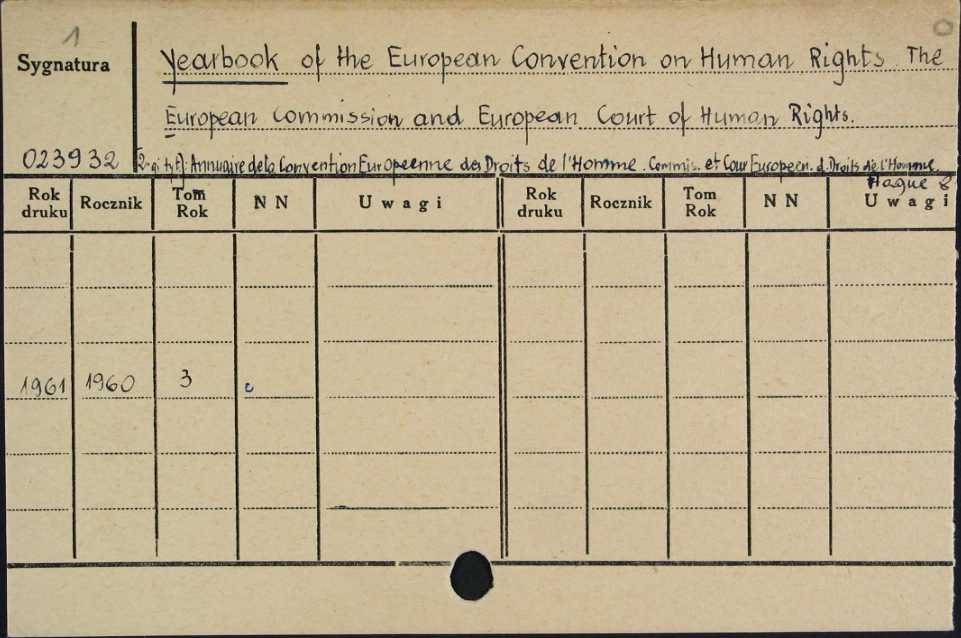 1
Sygnatura
Yearbook of the European Convention on Human Rights. The
European Commission and European Court of Human Rights.
023932 [2-gi tyt.]: Annuaire de la Convention Européenne des Droits de l'Homme. Commis. et Cour Européen. d. Droits de l'Homme.
Haque 8°
Rok druku Rocznik Tom Rok NN Uwagi Rok druku Rocznik Tom Rok NN Uwagi
1961 1960 3 c